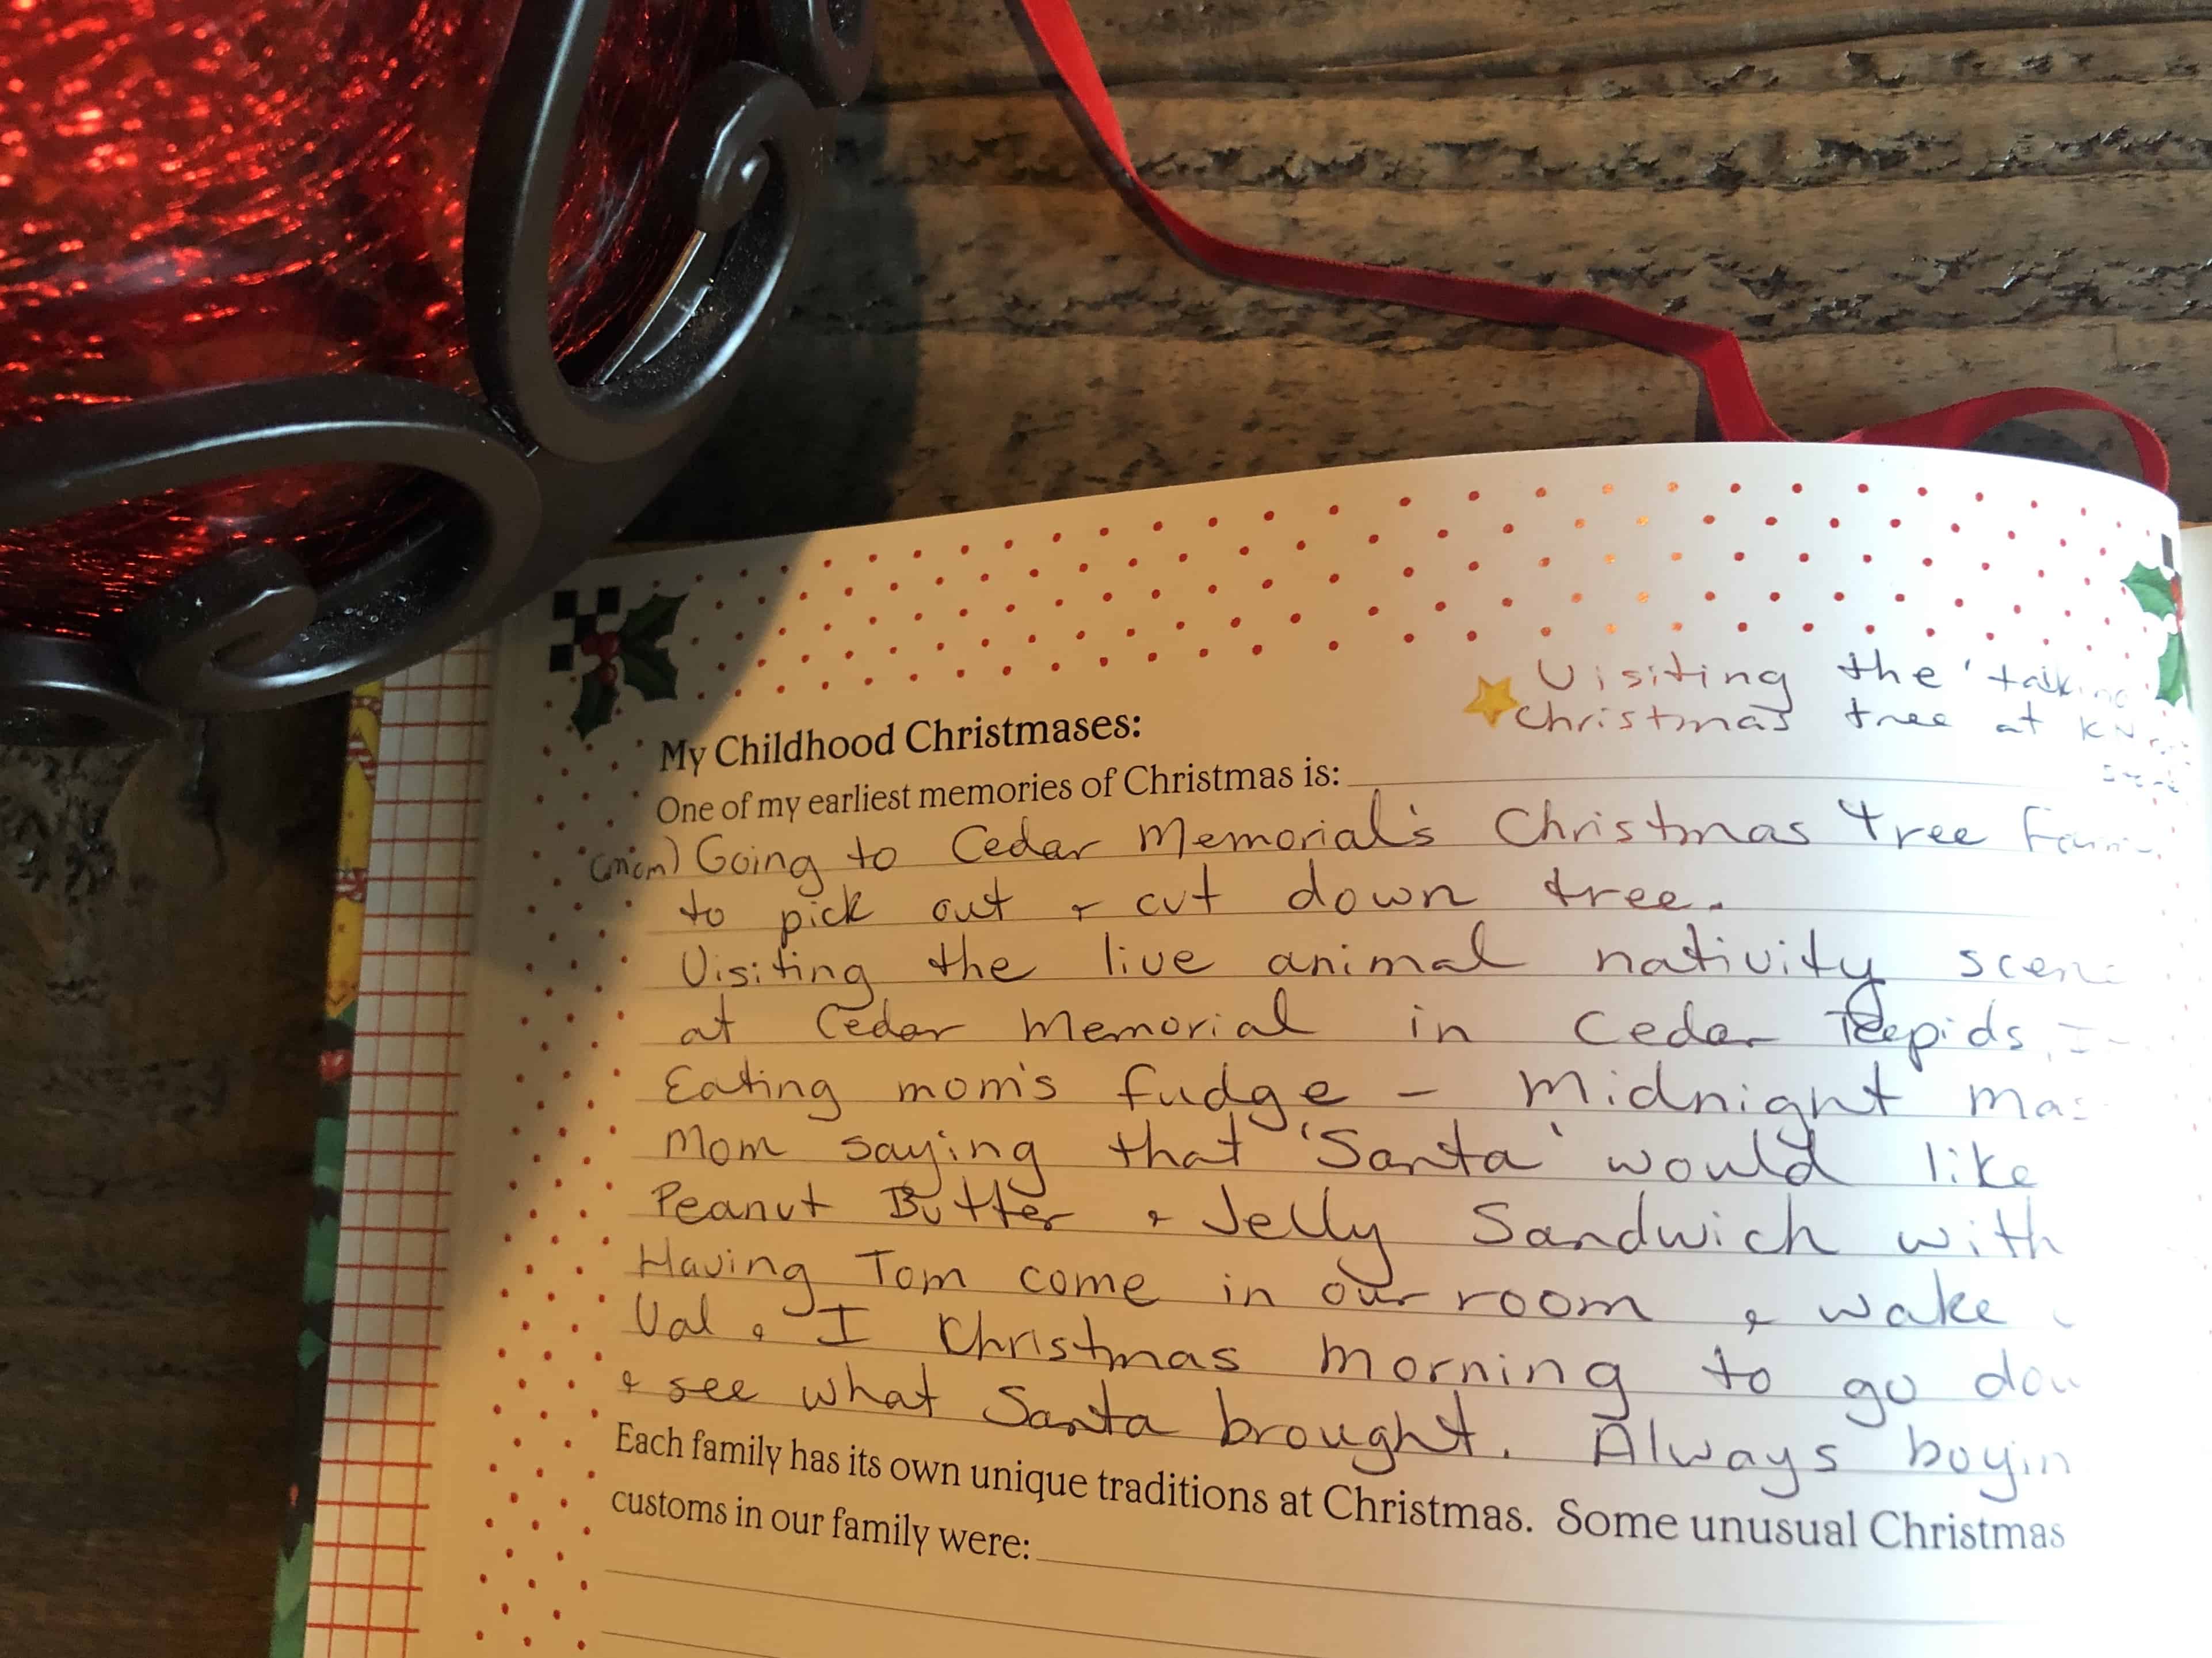 Visiting the 'talking'
Christmas tree at
My Childhood Christmases:
One of my earliest memories of Christmas is:
(mom) Going to Cedar Memorial's Christmas Tree
to pick out + cut down tree.
Visiting the live animal nativity
at Cedar Memorial in Cedar Rapids,
Eating mom's fudge - Midnight
Mom saying that 'Santa' would like
Peanut Butter + Jelly Sandwich with
Having Tom come in our room + wake
Val + I Christmas morning to go
+ see what Santa brought. Always
Each family has its own unique traditions at Christmas. Some unusual Christmas
customs in our family were: